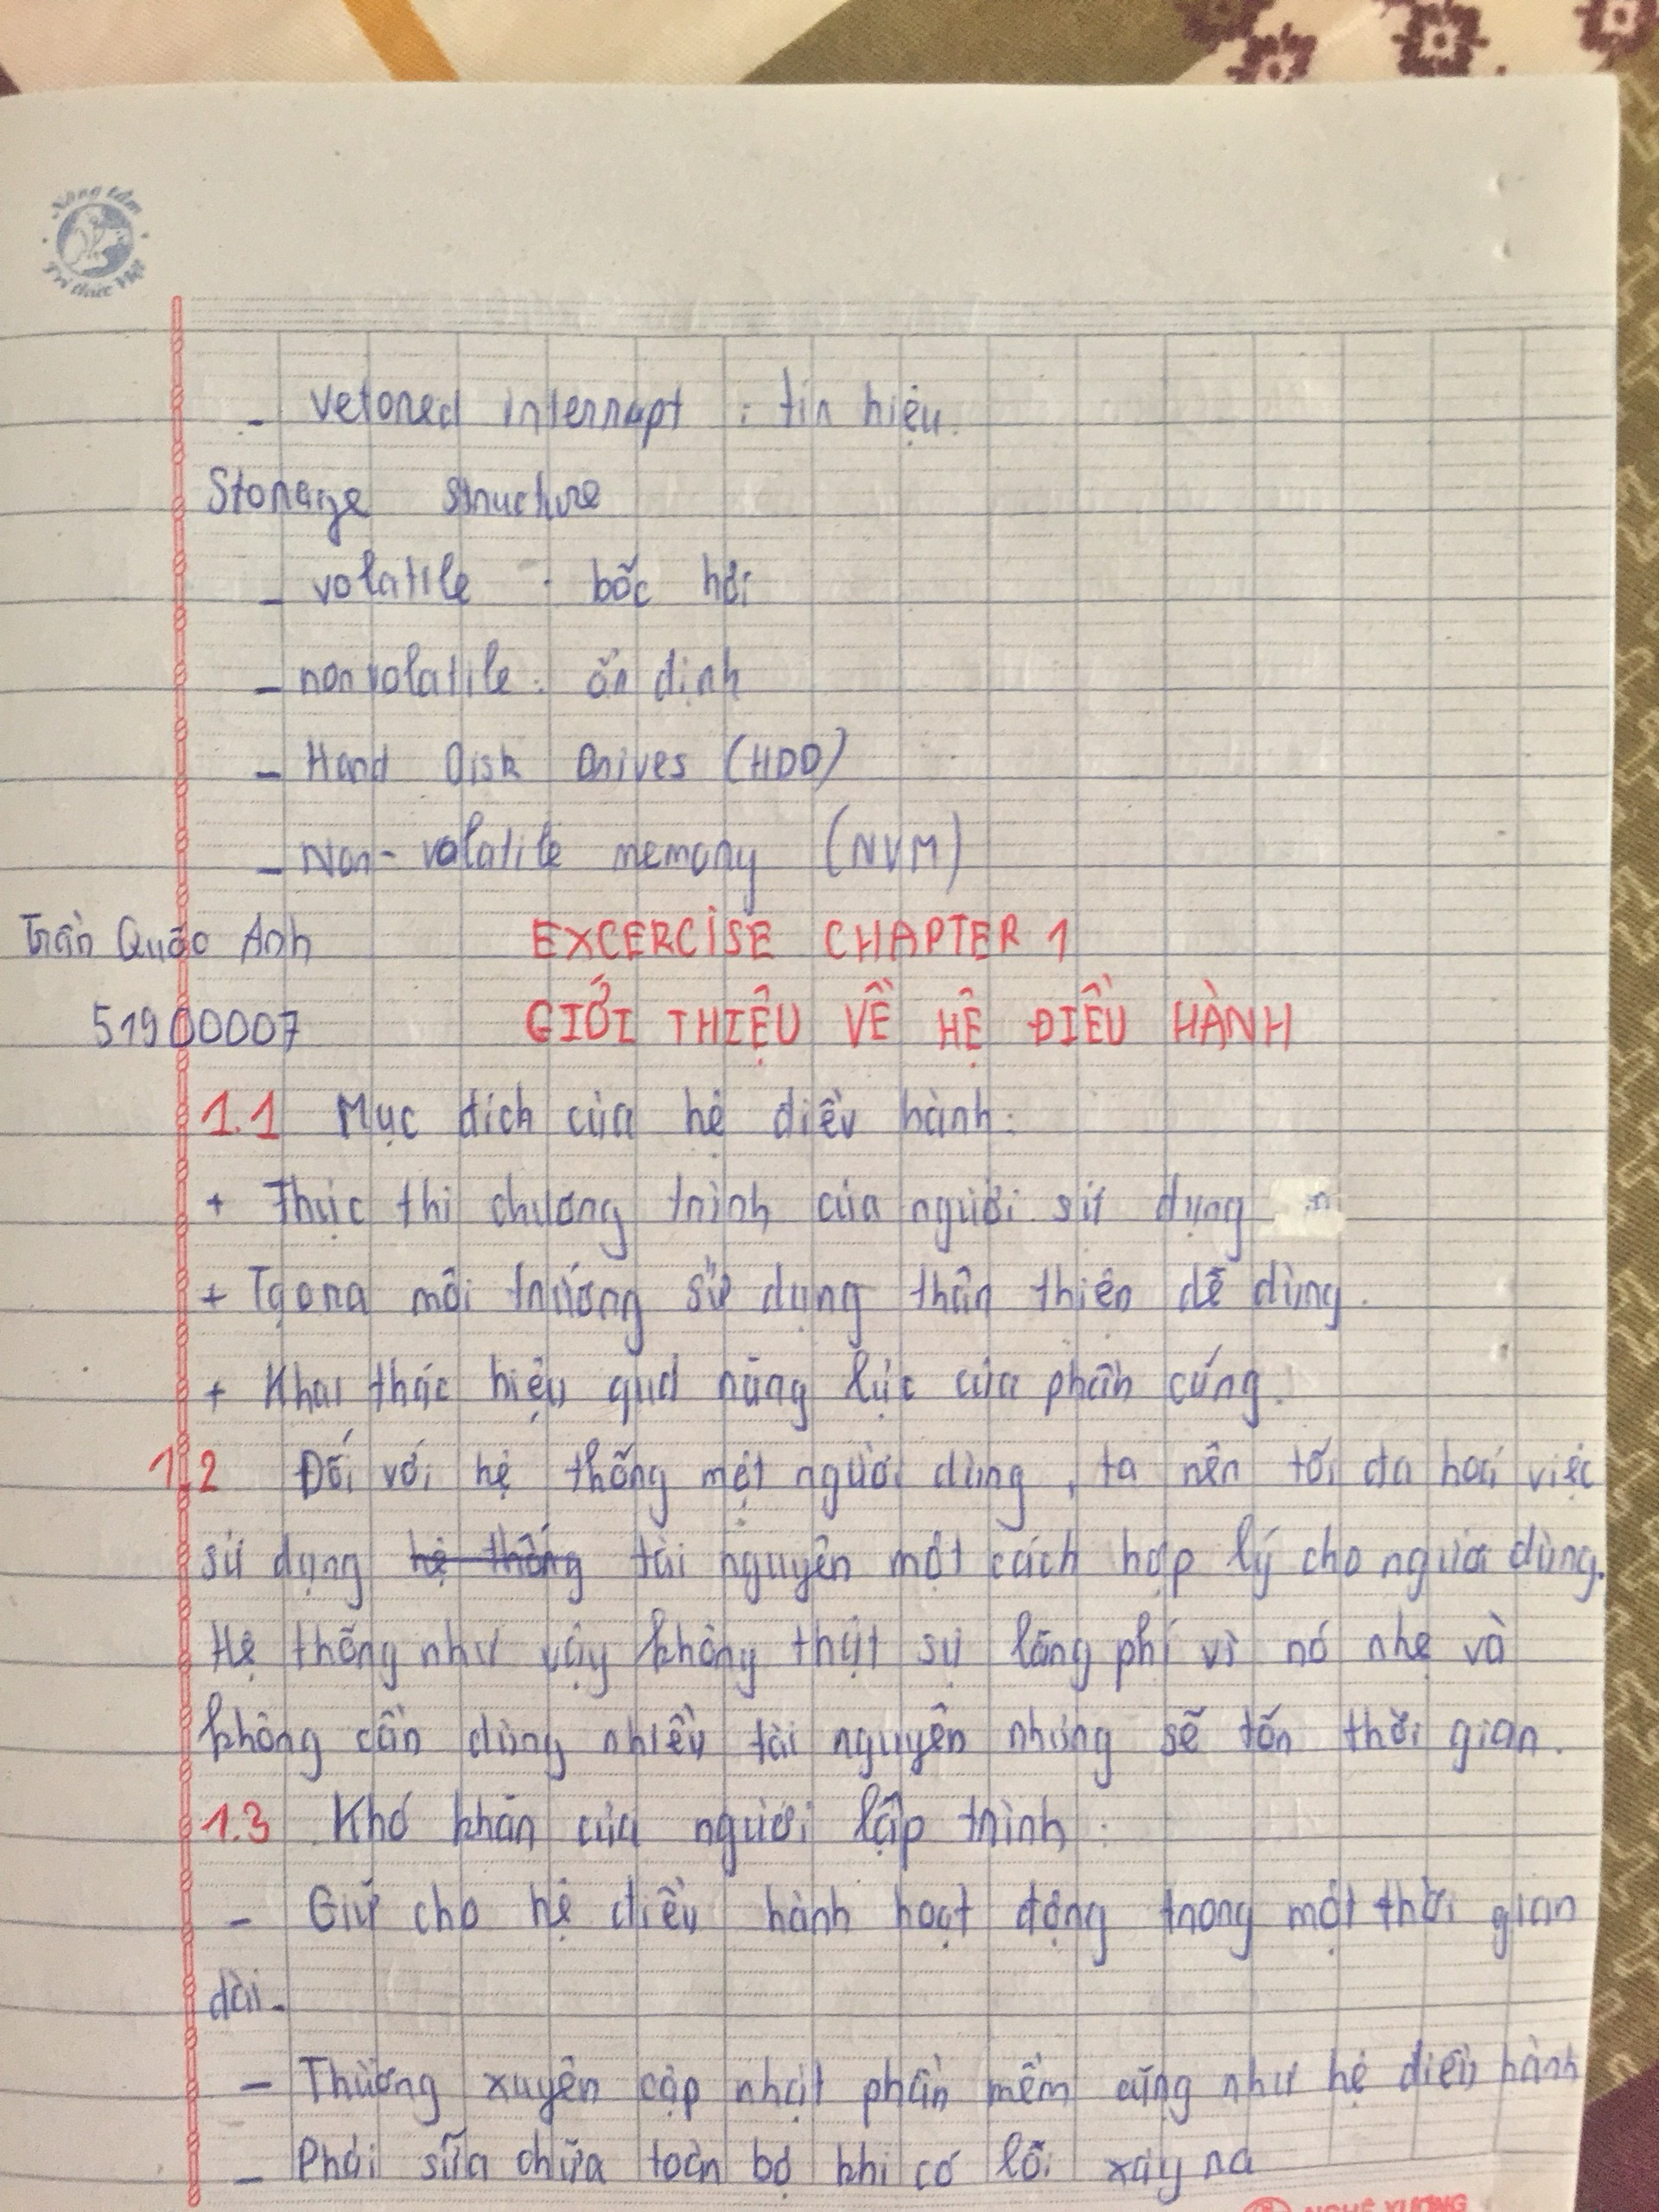 Nâng tầm
Tri thức Việt
- Vetored interrupt : tín hiệu.
Storage structure
- volatile : bốc hơi
- nonvolatile : ổn định
- Hard Disk Drives (HDD)
- Non-volatile memory (NVM)
Trần Quốc Anh EXCERCISE CHAPTER 1
51900007 GIỚI THIỆU VỀ HỆ ĐIỀU HÀNH
1.1 Mục đích của hệ điều hành:
+ Thực thi chương trình của người sử dụng
+ Tạo ra môi trường sử dụng thân thiện dễ dùng.
+ Khai thác hiệu quả năng lực của phần cứng.
1.2 Đối với hệ thống một người dùng, ta nên tối đa hoá việc
sử dụng hệ thống tài nguyên một cách hợp lý cho người dùng.
Hệ thống như vậy không thật sự lãng phí vì nó nhẹ và
không cần dùng nhiều tài nguyên nhưng sẽ tốn thời gian.
1.3 Khó khăn của người lập trình:
- Giữ cho hệ điều hành hoạt động trong một thời gian
dài.
- Thường xuyên cập nhật phần mềm cũng như hệ điều hành
- Phải sữa chữa toàn bộ khi có lỗi xảy ra
NGHỆ XƯƠNG